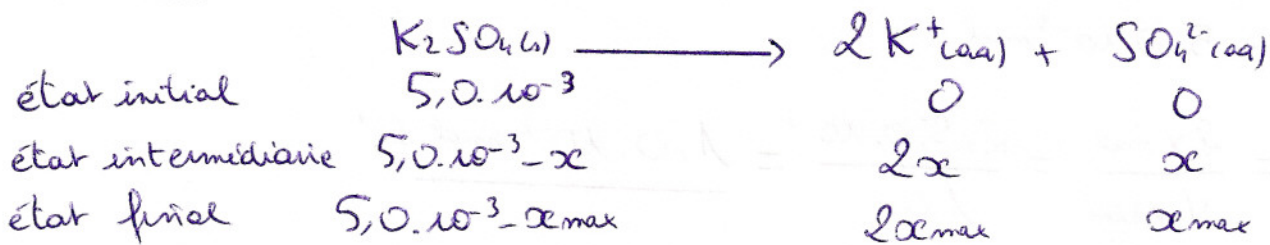 K₂SO₄(s) ⟶ 2K⁺(aq) + SO₄²⁻(aq)
état initial 5,0.10⁻³ 0 0
état intermédiaire 5,0.10⁻³-x 2x x
état final 5,0.10⁻³-xmax 2xmax xmax